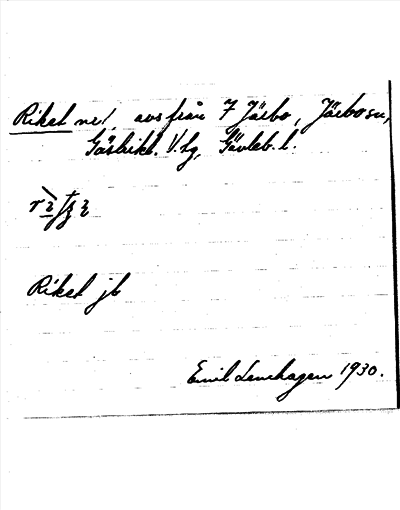 Riket ne/, avs från 7 Järbo, Järbo sn,
Gästrikl. V. tg, Gävleb. l.
Riket jb
Emil Lenhagen 1930.